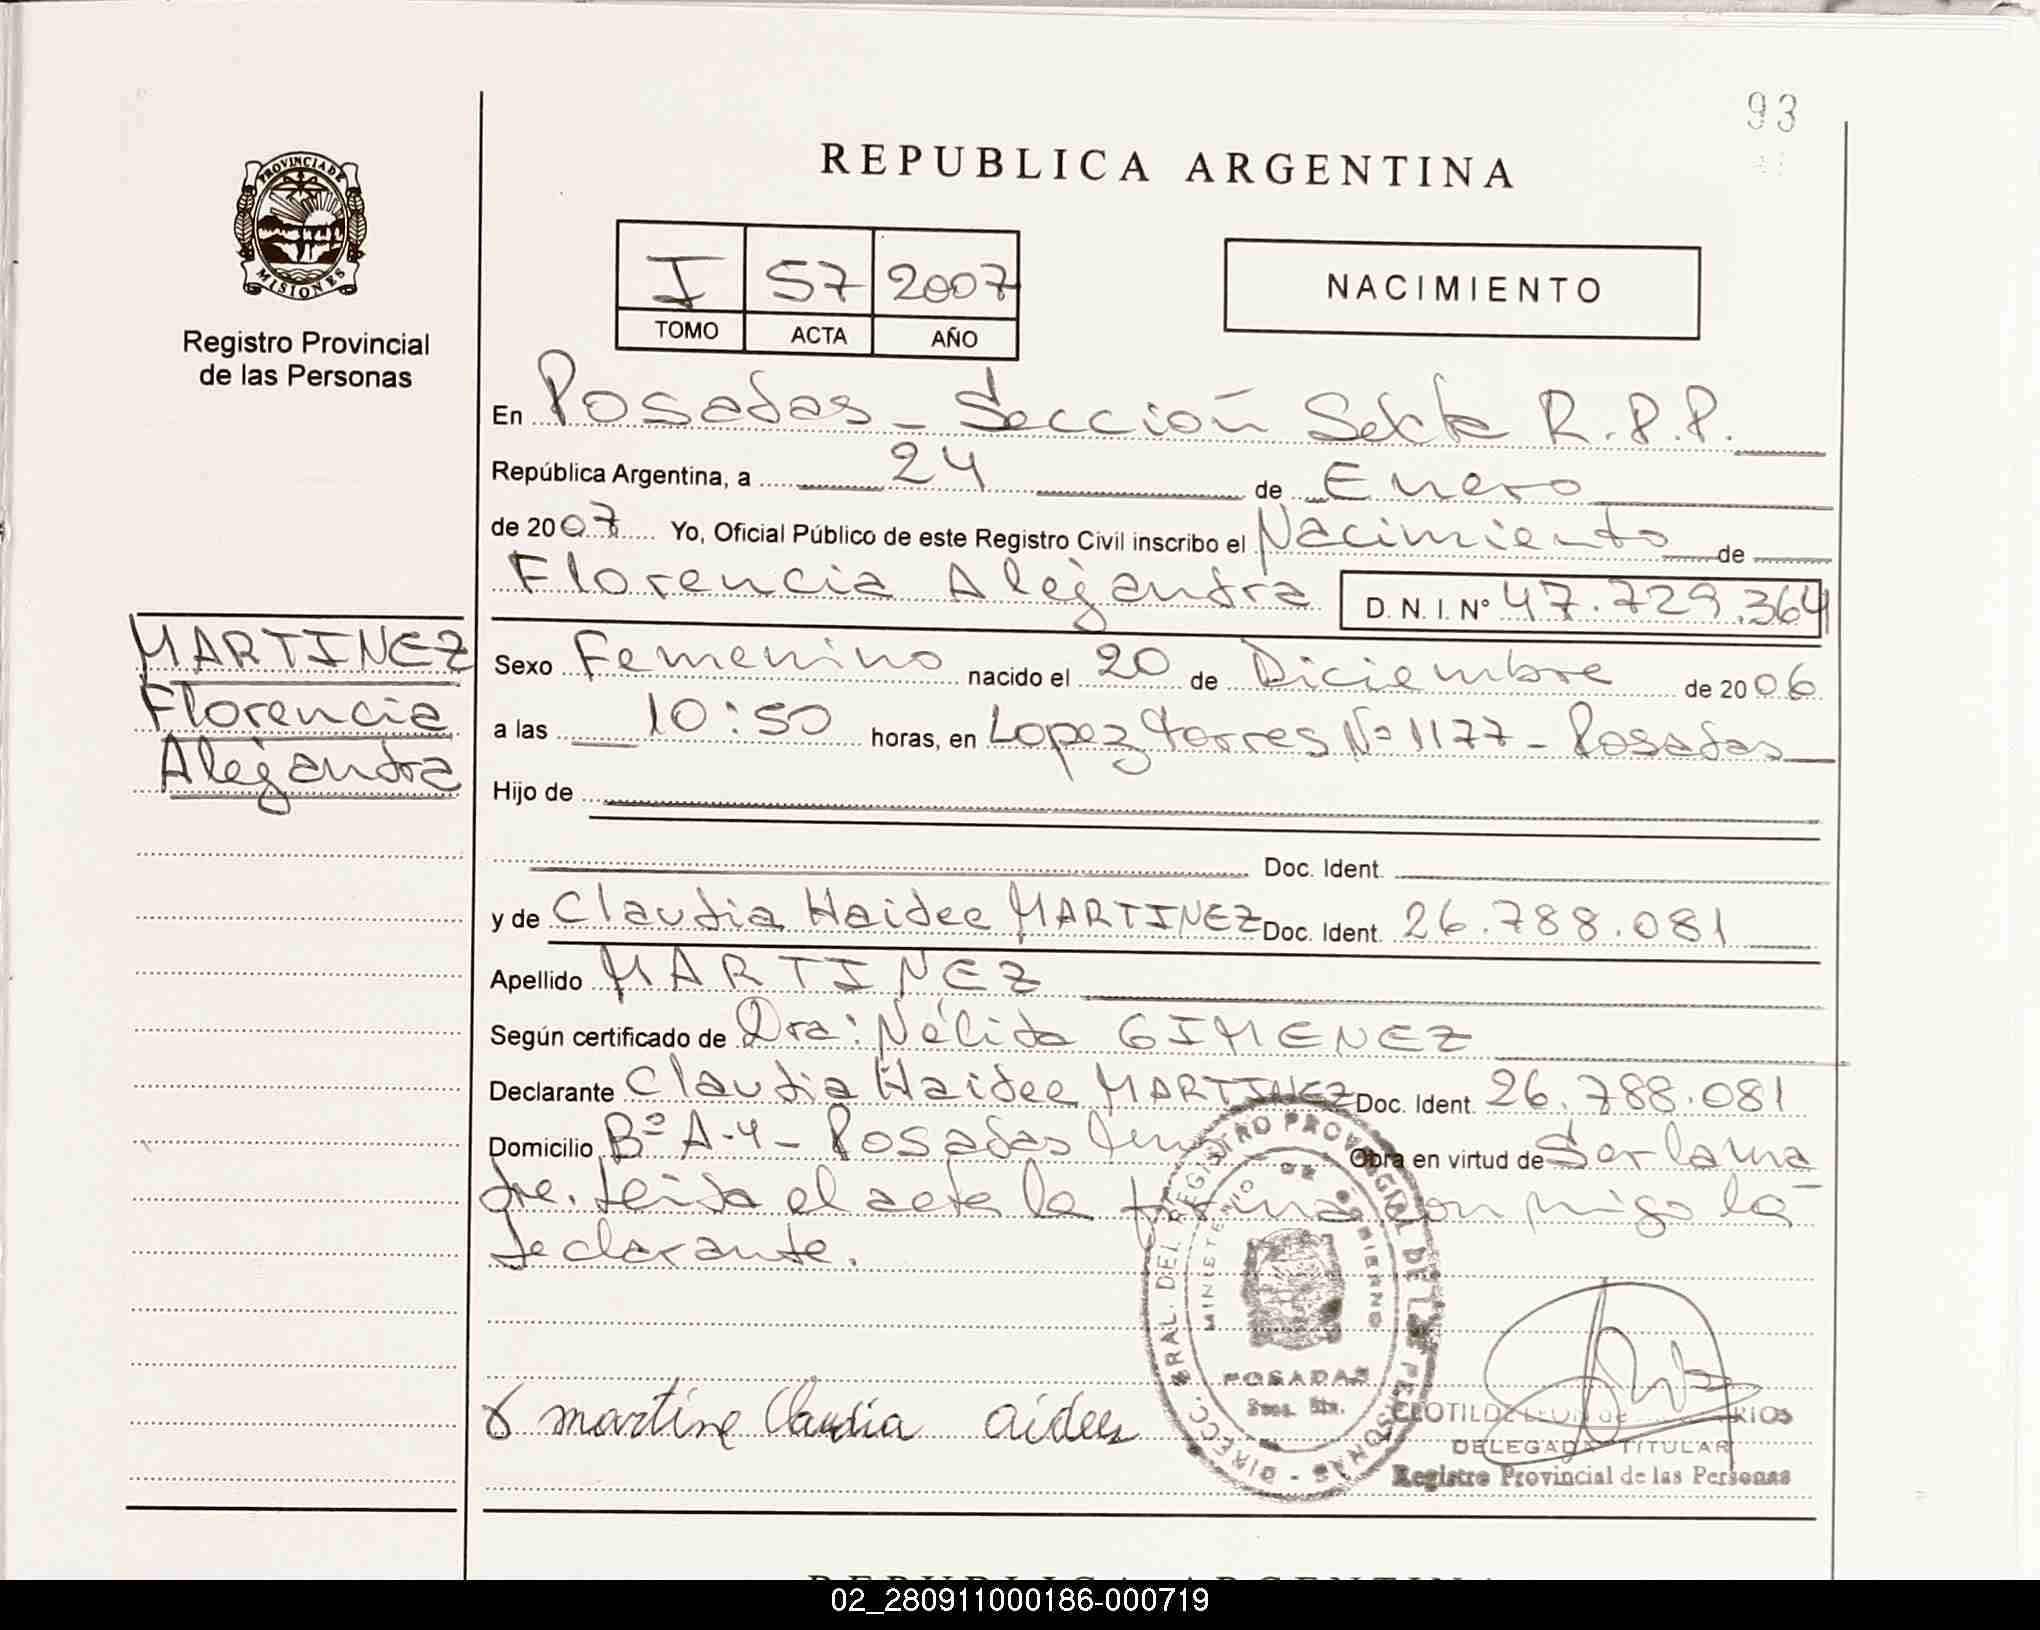 93
REPUBLICA ARGENTINA
PROVINCIA DE
MISIONES
Registro Provincial
de las Personas
I 57 2007
TOMO ACTA AÑO
NACIMIENTO
En Posadas - Sección Sexta R.P.P.
República Argentina, a 24 de Enero
de 2007 Yo, Oficial Público de este Registro Civil inscribo el Nacimiento de
Florencia Alejandra D.N.I. Nº 47.729.364
MARTINEZ
Florencia
Alejandra
Sexo Femenino nacido el 20 de Diciembre de 2006
a las 10:50 horas, en Lopez Torres Nº 1177 - Posadas
Hijo de
Doc. Ident.
y de Claudia Haidee MARTINEZ Doc. Ident. 26.788.081
Apellido MARTINEZ
Según certificado de Dra: Nélida GIMENEZ
Declarante Claudia Haidee MARTINEZ Doc. Ident. 26.788.081
Domicilio Bº A-4 - Posadas Obra en virtud de Ser la ma
dre. Leida el acta la firma con migo la
declarante.
DIRECC. GRAL. DEL REGISTRO PROVINCIAL DE LAS PERSONAS
MINISTERIO DE GOBIERNO
POSADAS
martine Claudia aidee
CLOTILDE RIOS
DELEGADA TITULAR
Registro Provincial de las Personas
REPUBLICA ARGENTINA
02_280911000186-000719